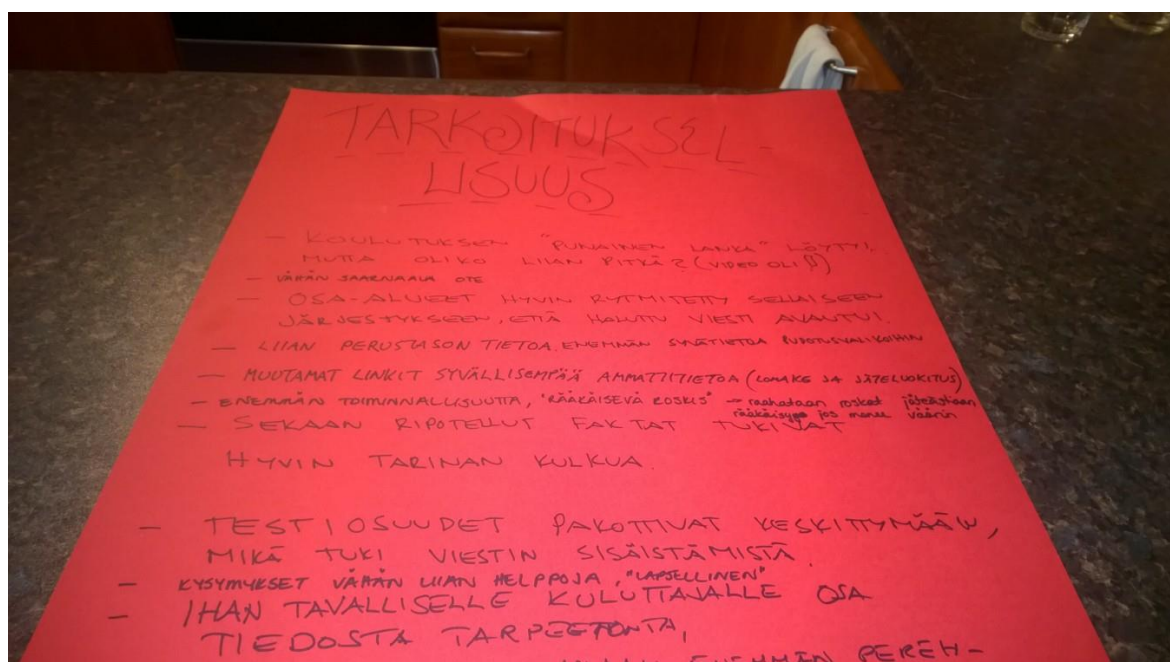 TARKOITUKSEL-
LISUUS
- KOULUTUKSEN "PUNAINEN LANKA" LÖYTYI,
MUTTA OLIKO LIIAN PITKÄ? (VIDEO OLI
- VÄHÄN SAARNAAVA OTE
- OSA-ALUEET HYVIN RYTMITETTY SELLAISEEN
JÄRJESTYKSEEN, ETTÄ HALUTTU VIESTI AVAUTUI.
- LIIAN PERUSTASON TIETOA. ENEMMÄN SYVÄTIETOA PUDOTUSVALIKOIHIN
- MUUTAMAT LINKIT SYVÄLLISEMPÄÄ AMMATTITIETOA (LOMAKE JA JÄTELUOKITUS)
- ENEMMÄN TOIMINNALLISUUTTA, "RÄÄKÄISEVÄ ROSKIS" → raahataan roskat jäteastiaan
rääkäisyjä jos menee väärin
- SEKAAN RIPOTELLUT FAKTAT TUKIVAT
HYVIN TARINAN KULKUA.
- TESTIOSUUDET PAKOTTIVAT KESKITTYMÄÄN,
MIKÄ TUKI VIESTIN SISÄISTÄMISTÄ
- KYSYMYKSET VÄHÄN LIIAN HELPPOJA, "LAPSELLINEN"
- IHAN TAVALLISELLE KULUTTAJALLE OSA
TIEDOSTA TARPEETONTA,
ENEMMÄN PEREH-